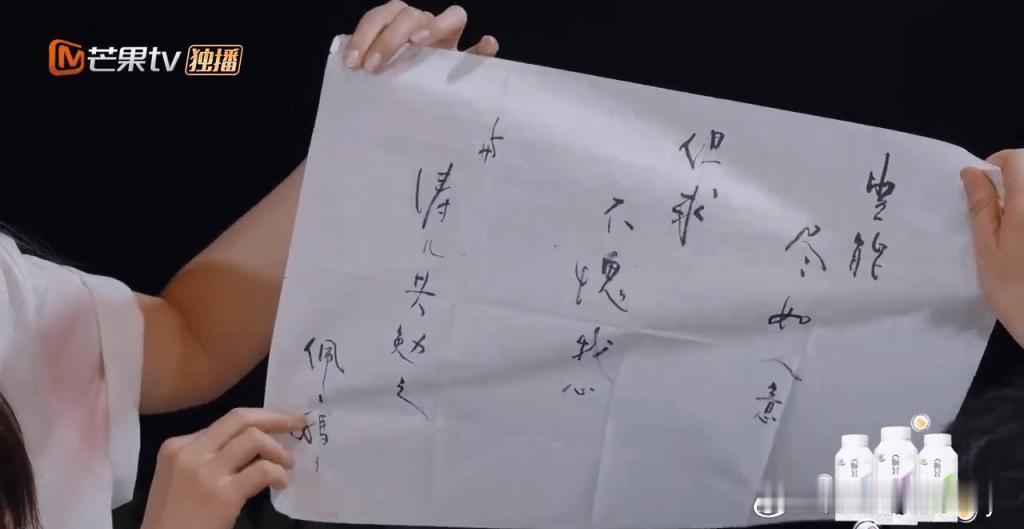 芒果tv 独播
岂能
尽如人意
但求
不愧我心
与
涛儿共勉之
佩妈